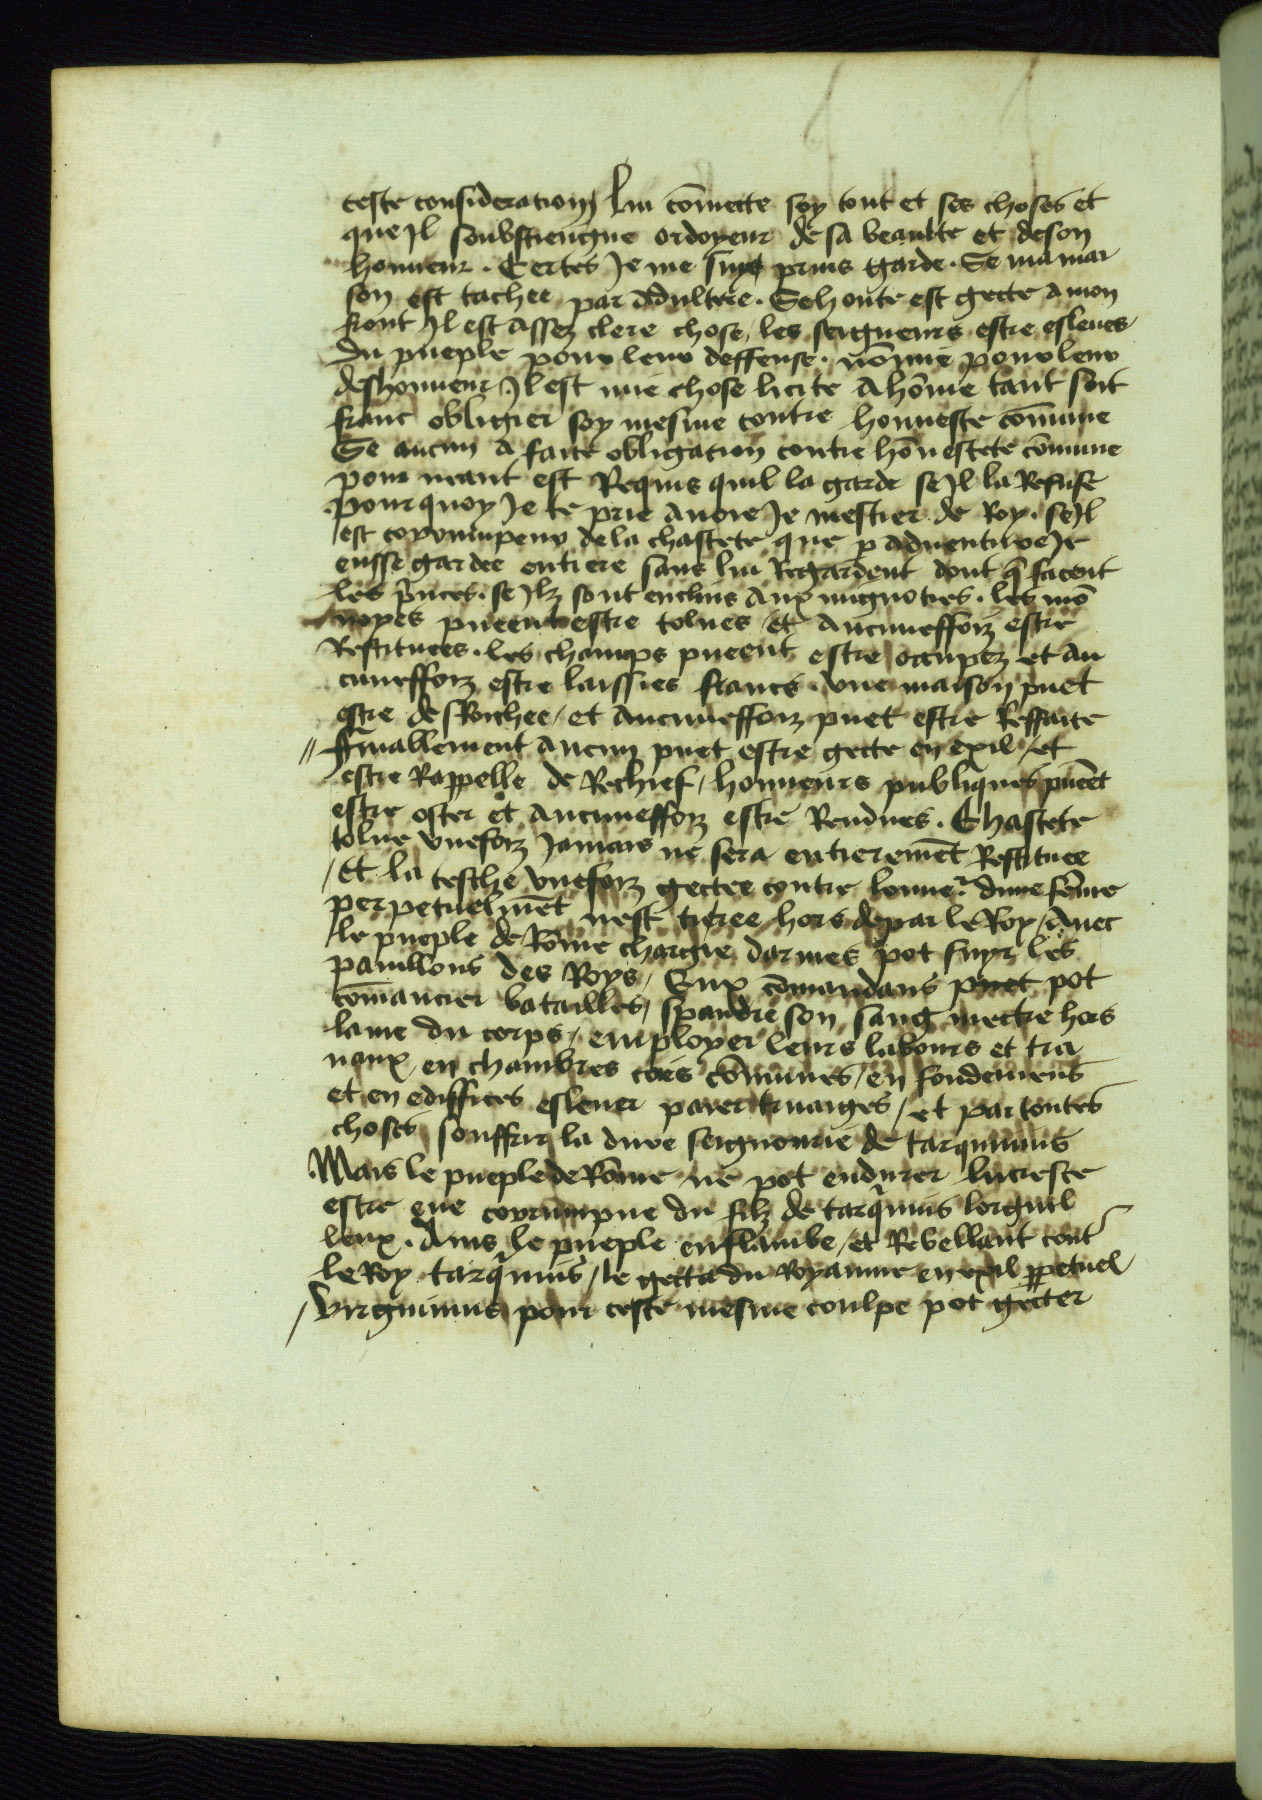 ceste consideration lui cōmecte soy tout et ses choses et
que Jl soubstiengne ordoyeur de sa beaulte et de son
honneur . Certes Je me suys prins garde . Se ma mai
son est tachee par adultere . Se honte est gecte a mon
front Jl est assez clere chose / les seigneurs estre esleues
du pueple pour leur deffense . nōmie pour leur
deshonneur Jl est mie chose licite a hōme tant soit
franc obligier soy mesme contre honneste cōmune
Se aucun a faite obligation contre hōnestete cōmune
pour neant est Requis quil la garde se Jl la Refuse
pour quoy Je te prie auoie Je mestier de Roy . se Jl
est corrumpeur de la chastete que p aduenture Je
eusse gardee entiere sans lui Regardent dont q̄ facent
les p̄nces . se Jlz sont enclins aux mignoties . les mō
noyes pueent estre tolues et aucuneffoiz estre
Restituees . les champs pueent estre ocupez et au
cuneffoiz estre laissies francs . vne maison puet
estre desRochee / et aucuneffoiz puet estre Reffaite
// finallement aucun puet estre gecte en exil / et
estre Rappelle de Rechief / honneurs publiques puēt
estre oster et aucuneffoiz estre Rendues . Chastete
tolue vnefoiz Jamais ne sera entieremēt Restituee
/ Et la tesche vnefoiz gectee contre lonne.r dune fēme
perpetuelmēt nest tiree hors de par le Roy / auec
le pueple de Rōme chargie darmes pot fuyr les
pauillons des Roys / Eux cōmandans puet pot
cōmancier batailles / spandre son sang mectre hors
lame du corps / employer leurs labours et tra
uaux en chambres coies cōmunes / en fondemens
et en ediffices esleuer paier truaiges / et par toutes
choses souffrir la dure seignourie de tarquinius
Mais le pueple de Rōme ne pot endurer lucresce
estre eue corrumpue du filz de tarq̄nius lorguil
leux . Ains le pueple enflambe / et Rebellant cont
le Roy tarq̄nius / le gecta du Royaume en exil ppetuel
/ Virginius pour ceste mesme coulpe pot gecter